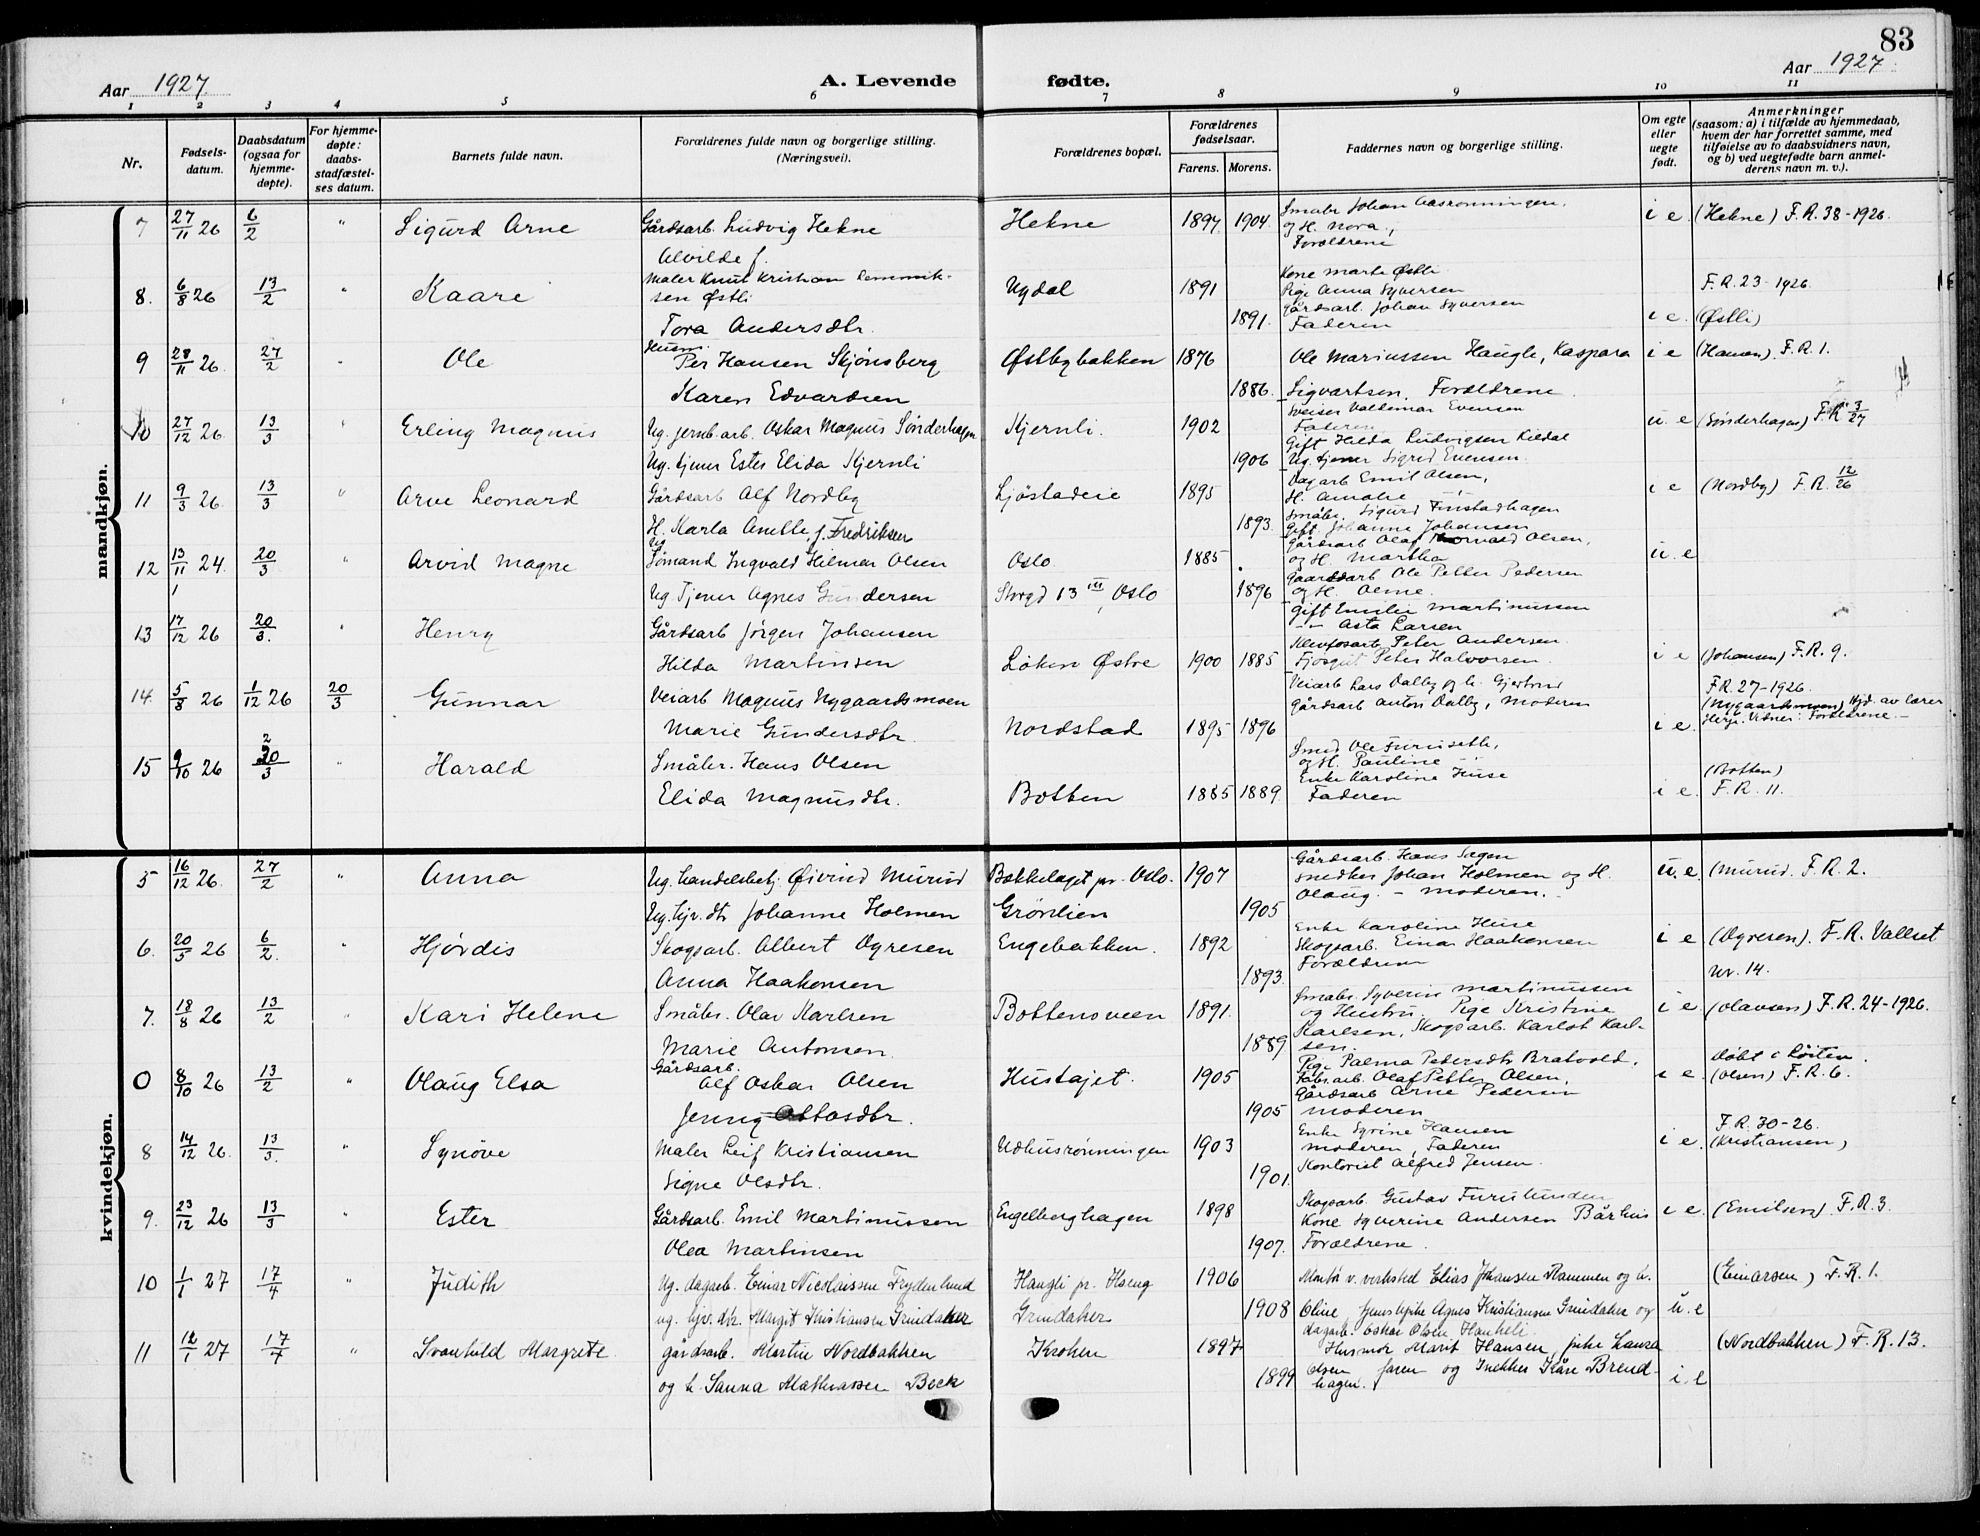 83
Aar 1927
A. Levende fødte.
Aar 1927
1 2 3 4 5 6 7 8 9 10 11
Nr.
Fødsels-
datum.
Daabsdatum
(ogsaa for
hjemme-
døpte).
For hjemme-
døpte:
daabs-
stadfæstel-
ses datum.
Barnets fulde navn.
Forældrenes fulde navn og borgerlige stilling.
(Næringsvei).
Forældrenes bopæl.
Forældrenes
fødselsaar.
Farens. Morens.
Faddernes navn og borgerlige stilling.
Om egte
eller
uegte
født.
Anmerkninger
(saasom: a) i tilfælde av hjemmedaab,
hvem der har forrettet samme, med
tilføielse av to daabsvidners navn,
og b) ved uegtefødte barn anmel-
derens navn m. v.).
mandkjøn.
7 27/11 26 6/2 " Sigurd Arne Gårdsarb. Ludvig Hekne Hekne 1897 1904 Småbr Johan Aasrønningen, i e (Hekne) F.R. 38-1926.
og H. Nora.,
Alvilde f. Forældrene
8. 6/8 26 13/2 " Kaare Maler Knut Kristian
sen Østli Ugdal 1891 Kone Marte Østli F.R. 23-1926.
Pige Anna Syversen
Tora Andersdtr. 1891. Gårdsarb. Johan Syversen i e (Østli)
Faderen
9 28/11 26. 27/2 " Ole Husm. Per Hansen Skjønsberg Østbybakken 1876 Ole Mariussen Haugle, Kaspara i e (Hansen). F.R. 1.
Karen Edvardsen 1886. Sigvartsen, Forældrene
10 27/12 26. 13/3 " Erling Magnus Ug. jernb.arb. Oskar Magnus Sønderhagen Kjernli. 1902 Sveiser Valdemar Evensen u. e (Sønderhagen) F.R. 3/27
Faderen
Gift Hilda Ludvigsen Kildal
Ug. tjener Ester Elida Kjernli 1906 Ug. tjener Sigrid Evensen.
11 9/3 26. 13/3 " Arve Leonard Gårdsarb Alf Nordby Ljøstadeie 1895 Dagarb Emil Olsen, i e (Nordby) F.R. 12/26
H. Amalie
H. Karla Anette f. Fredriksen 1893. Småbr. Sigurd Finstadhagen
Gift. Johanne Johansen
12 13/11 24. 20/3 " Arvid Magne Ug Sømand Ingvald Hilmar Olsen Oslo 1885 Gårdsarb Olaf Thorvald Olsen, u. e
og H. Martha
Ug. Tjener Agnes Gundersen Storgd 13 III, Oslo 1896 Gaardsarb Ole Petter Pedersen
og H. Anne.
13 17/12 26 20/3. " Henry Gårdsarb Jørgen Johansen Gift Emilie Martinussen
– – Asta Larsen
Hilda Martinsen Løken Østre 1900 1885 Klevfosarb. Peter Andersen. i e (Johansen) F.R. 9.
Fjosgut Peter Halvorsen.
14. 5/8 26 1/12 26 20/3 Gunnar Veiarb Magnus Nygaardsmoen Veiarb Lars Dalby og h. Gjertrud F.R. 27-1926.
Gårdsarb Anton Dalby, Moderen (Nygaardsmoen) Hjd. av lærer
Marie Gundersdtr. Nordstad 1895 1896 i e Vidner: Forældrene.
15 9/10 26 20/3 " Harald Småbr. Hans Olsen Smed Ole Furuseth,
og H. Pauline (Botten)
Enke Karoline Huse
Elida Magnusdtr. Botten 1885 1889. Faderen i e. F.R. 11.
kvindekjøn.
5 16/12 26. 27/2 " Anna Ug. handelsbetj. Øivind Murud Bækkelaget pr. Oslo. 1907 Gårdsarb. Hans Sagen u. e. (Murud. F.R. 2.
Snedker Johan Holmen og H.
Ug. hjv. dtr Johanne Holmen Grønlien 1905 Olaug. – Moderen.
6. 20/5 26 6/2. " Hjørdis Skogsarb. Albert Dyresen Engebakken. 1892 Enke Karoline Huse i e (Dyresen). F.R. Vallset
Skogsarb. Einar Haakensen
Anna Haakensen 1893. Forældrene nr. 14.
7. 18/8 26 13/2 " Kari Helene Småbr. Olav Karlsen Bottensveen 1891. Småbr. Syverin Martinussen i e (Olavsen) F.R. 24-1926.
og Hustru. Pige Kristine
Marie Antonsen 1889 Karlsen, Skogsarb. Karlot Karl-
sen.
0 8/10 26 13/2 " Olaug Elsa Gårdsarb. Alf Oskar Olsen Hustajet. 1905 Pige Palma Pedersdtr Bratvold. Døbt i Løiten.
Olaf Petter Olsen, i e (Olsen) F.R. 6.
Jenny Ottosdtr. 1905 Gårdsarb Arne Pedersen
Moderen
8 14/12 26. 13/3. " Synøve Maler Leif Kristiansen Udhusrønningen 1903 Enke Syrine Hansen i e. F.R. 30-26.
Moderen, Faderen (Kristiansen)
Signe Olsdtr. 1901. Kontorist Alfred Jensen.
9. 23/12 26 13/3 " Ester Gårdsarb. Emil Martinussen Engelberghagen 1898 Skogsarb. Gustav Furulunden i e. (Emilsen) F.R. 3.
Kone Syverine Andersen Bårhus
Olea Martinsen 1907. Forældrene.
10 1/1 27 17/4 " Judith Ug. dagarb. Einar Nicolaissen Frydenlund Haugli pr. Hseng 1906 Montør v. verksted Elias Johansen Rammen og h. (Einarsen) F.R. 1.
ug. hjv. dtr. Margit Kristiansen Grindaker Grindaker 1908 Oline Agnes Kristiansen Grindaker og u. e
dagarb. Oskar Olsen,
11 12/1 27 17/4 " Svanhild Margrete gårdsarb. Martin Nordbakken Kroken 1897 Husmor Marit Hansen, pike (Nordbakken) F.R. 13.
og h. Sanna Mathiassen Beck 1899 Olsen faren og Snekker Kåre Brend-
hagen. i. e